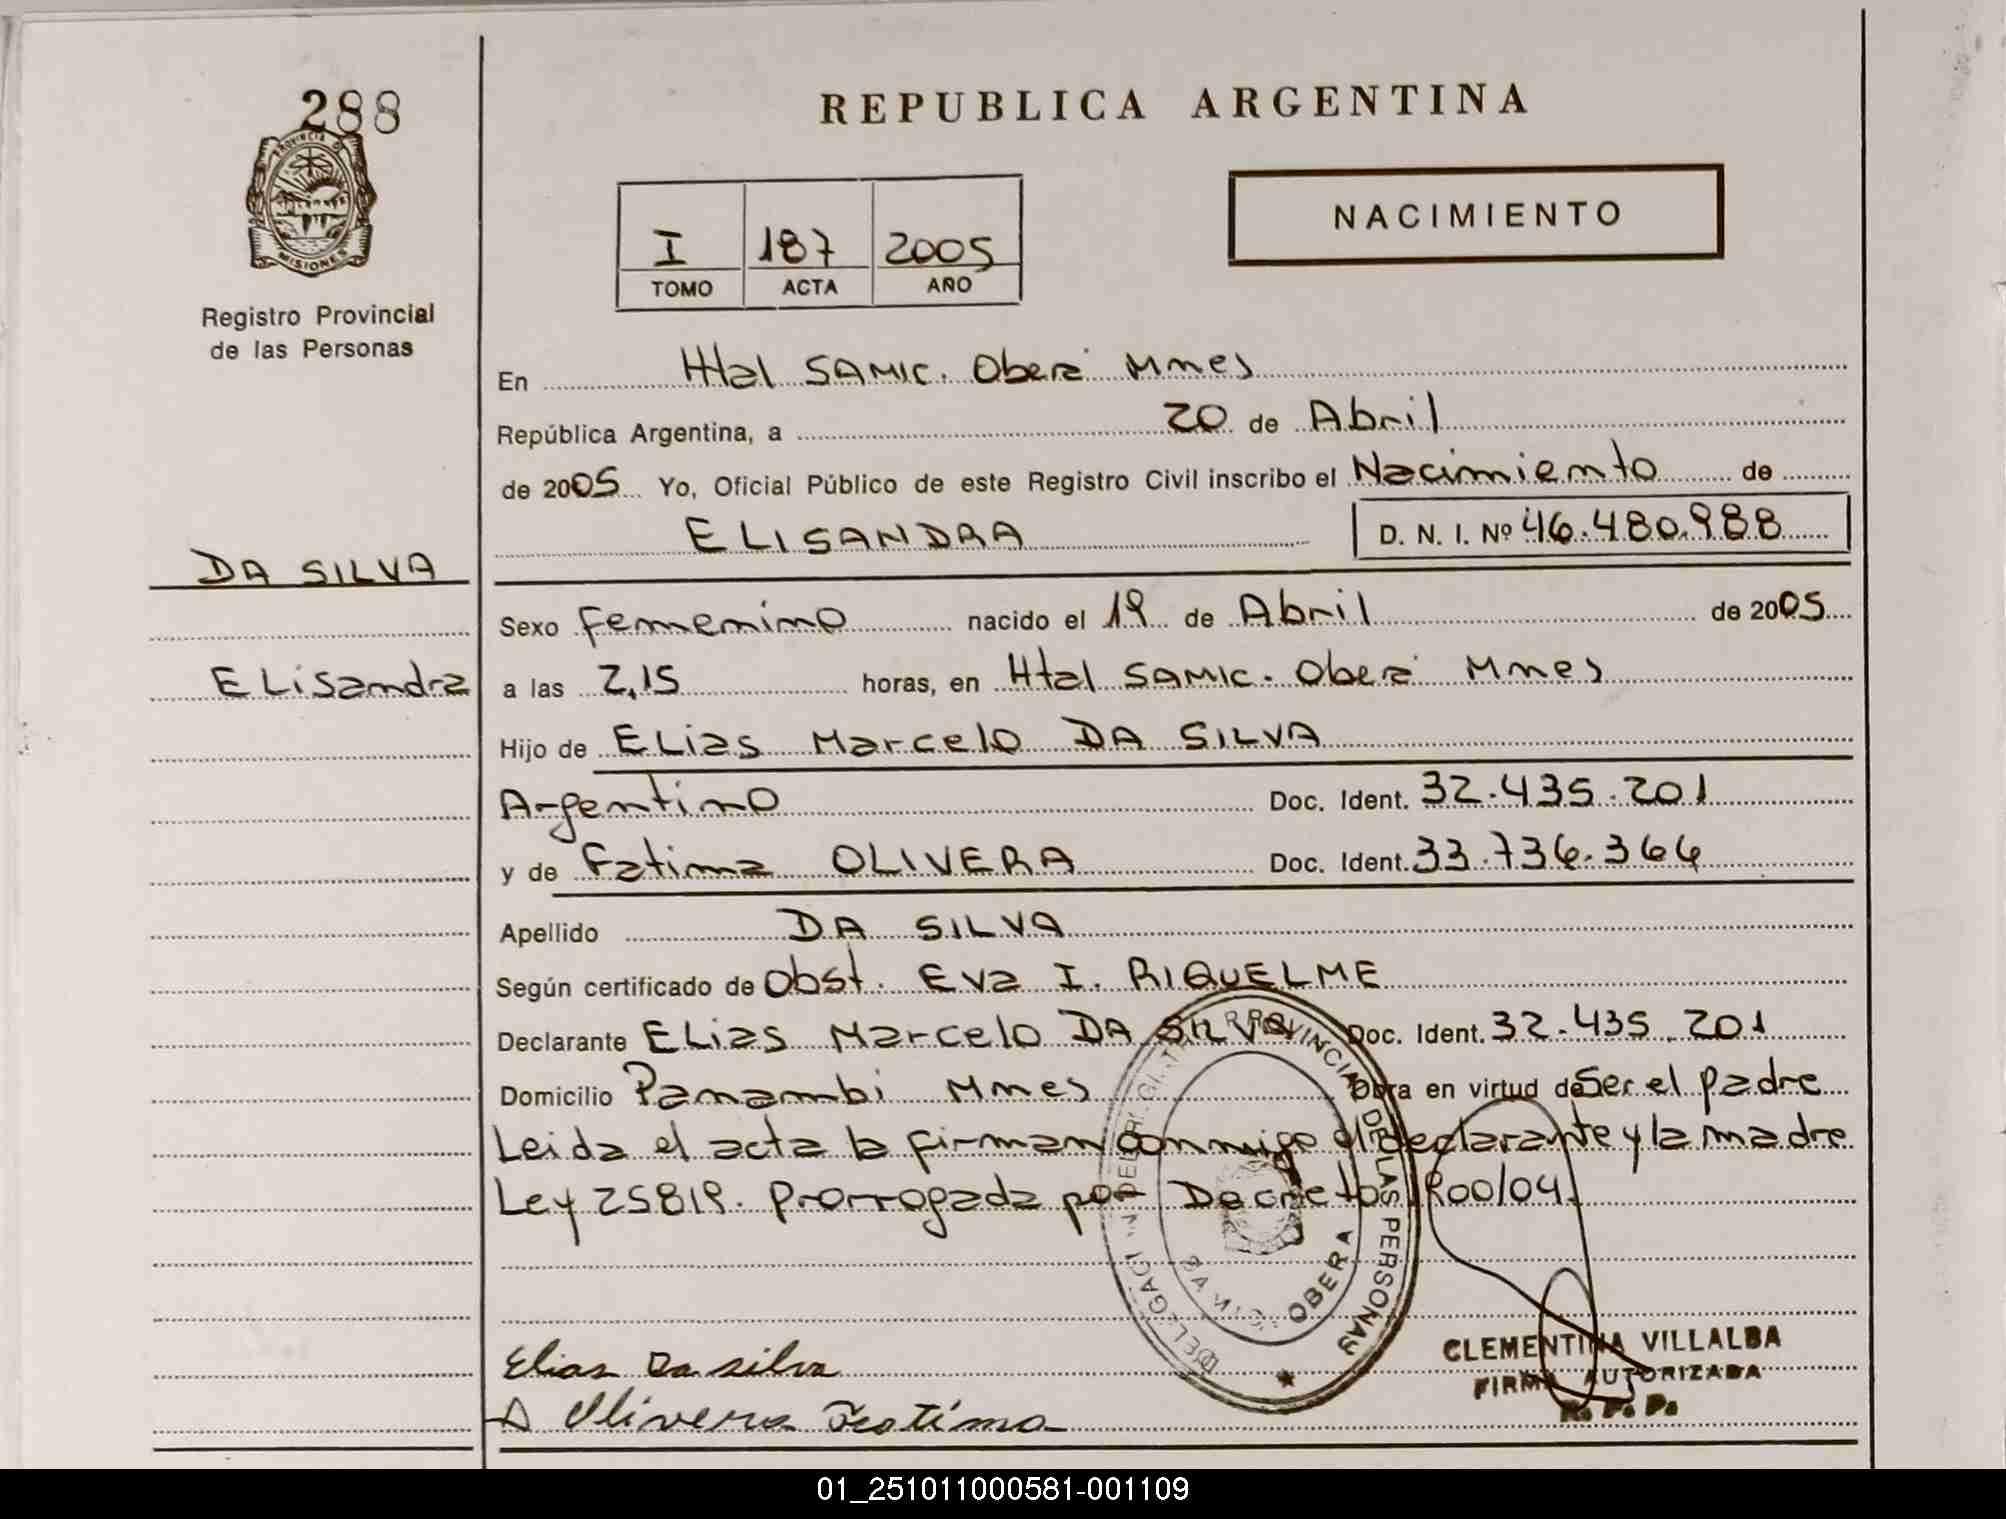 288
PROVINCIA DE
MISIONES
Registro Provincial
de las Personas
DA SILVA
ELisandra
REPUBLICA ARGENTINA
I 187 2005
TOMO ACTA AÑO
NACIMIENTO
En Htal SAMIC. Oberá Mnes
República Argentina, a 20 de Abril
de 2005 Yo, Oficial Público de este Registro Civil inscribo el Nacimiento de
ELISANDRA D. N. I. Nº 46.480.988
Sexo femenino nacido el 19 de Abril de 2005
a las 2,15 horas, en Htal SAMIC. Oberá Mnes
Hijo de ELias Marcelo DA SILVA
Argentino Doc. Ident. 32.435.201
y de Fatima OLIVERA Doc. Ident. 33.736.364
Apellido DA SILVA
Según certificado de Obst. Eva I. RIQUELME
Declarante ELias Marcelo DA SILVA Doc. Ident. 32.435.201
Domicilio Panambi Mnes Obra en virtud de Ser el padre
Leida el acta la firman conmigo el declarante y la madre
Ley 25819. prorrogada por Decreto 1900/04.
PROVINCIAL DE LAS PERSONAS
OBERA
Elias Da silva
Olivera Fatima
CLEMENTINA VILLALBA
FIRMA AUTORIZADA
R. P. P.
01_251011000581-001109